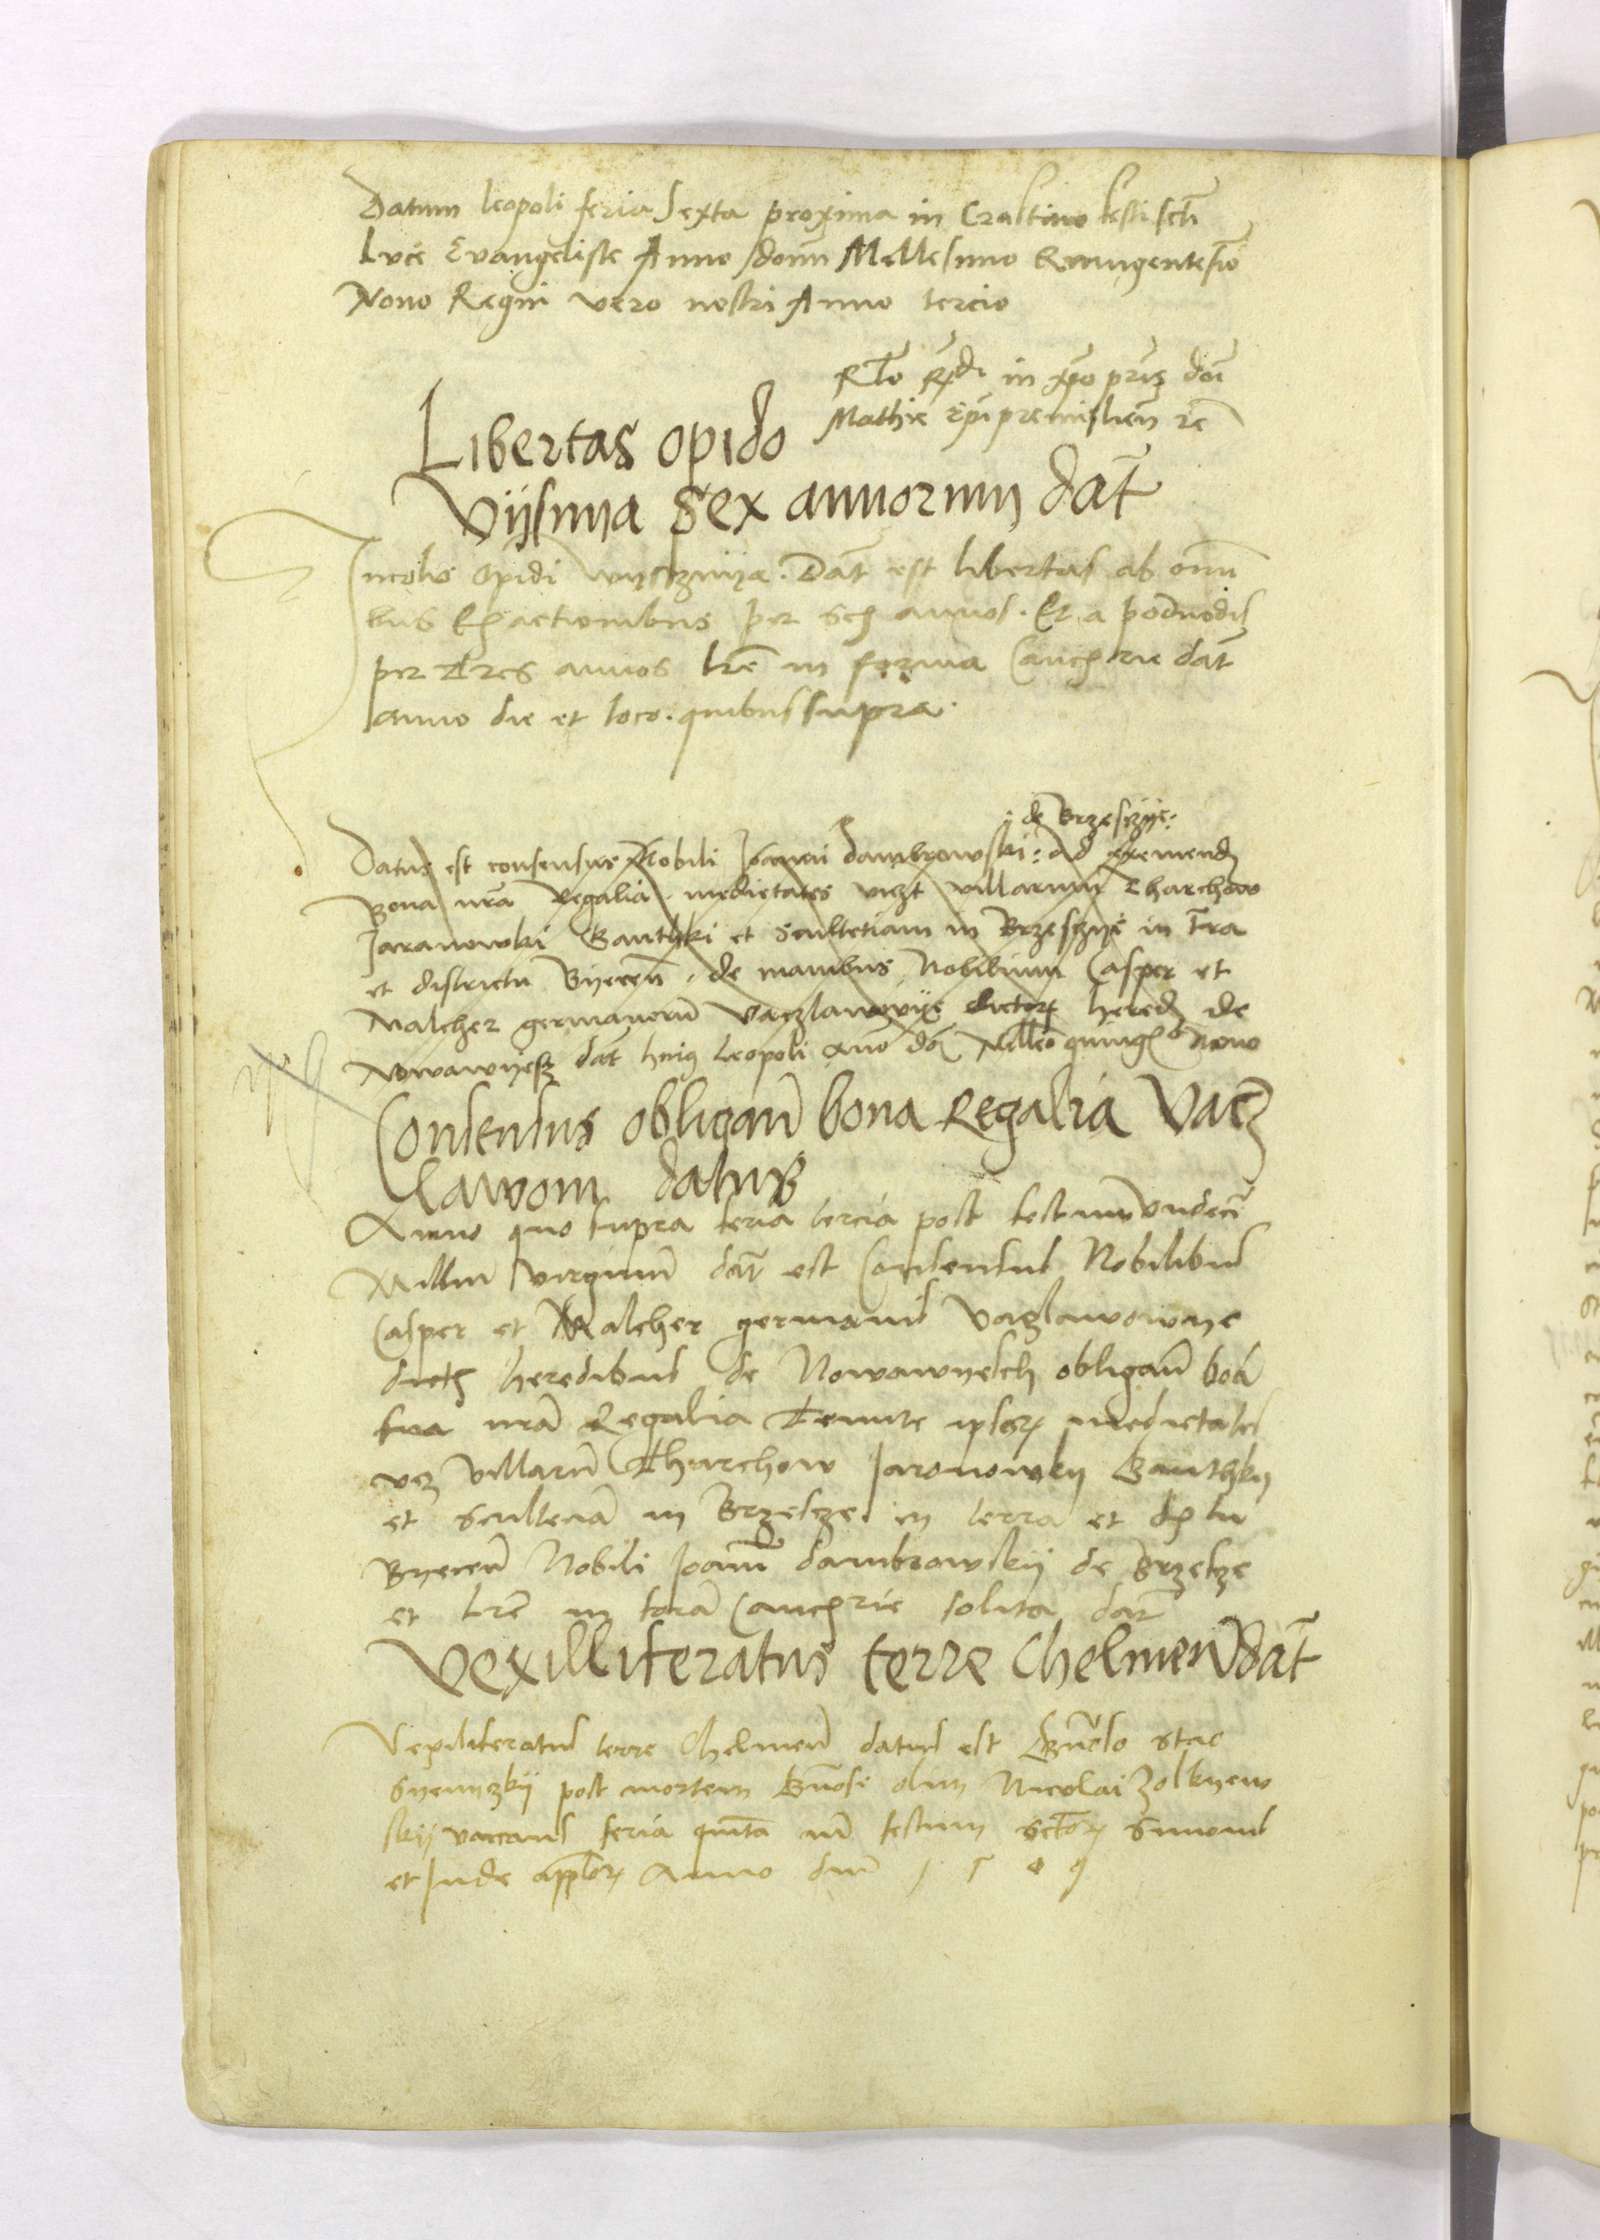 Datum leopoli feria Sexta proxima in Crastino festi scti
Luce Evangeliste Anno domi Millesimo Quingentesio
Nono Regni vero nostri Anno tercio
Rlo Rdi in xpo pris doi
Mathie Epi premislien rc
Libertas opido
Vijsnija Sex annorum dat
Incolis opidi Wijsznija. Dat est libertas ab omi
bus Exactionibus per sex annos. Et a podwodis
per Tres annos lre in forma Canc rie dat
anno die et loco. quibus supra.
: de Brzesczije:
Datus est consensus Nobili Joanni dambrowski: ad exemend
Bona nra Regalia medietates viczt villarum Tharchow
Jaranowski Ganthki et scultetiam in Brzesczije in Tra
et districtu Bijecen. de manibus Nobilium Casper et
Malcher germanoru Vaczlawowije dictor hered de
Nowawijesz dat huig Leopoli ano doi Milleo quing o nono
Consensus obligan bona Regalia Vacz
lawom datus
Anno quo supra feria tercia post festum Undeci
Millm virginm dat est Consensus Nobilibus
Casper et Malcher germanis Vaczlawowije
dict heredibus de Nowawijesch obligan boa
sua nra Regalia Tenute ipsor medietates
vcz villaru Tharchow Jaronowsky Ganthky
et scultecia in Brzescze in terra et d tu
Bijecen Nobili Joanni dambrowskij de Brzescze
et lre in fora Canc rie solita dat
Vexilliferatus terre Chelmen dat
Vexiliferatus terre Chelmen datus est Gnoso Stac
Sijenijczkij post mortem Gnosi olim Nicolai Zolkijew
skij vaccans feria quita an festum sctor Simonis
et Jude applor Anno dni 1509